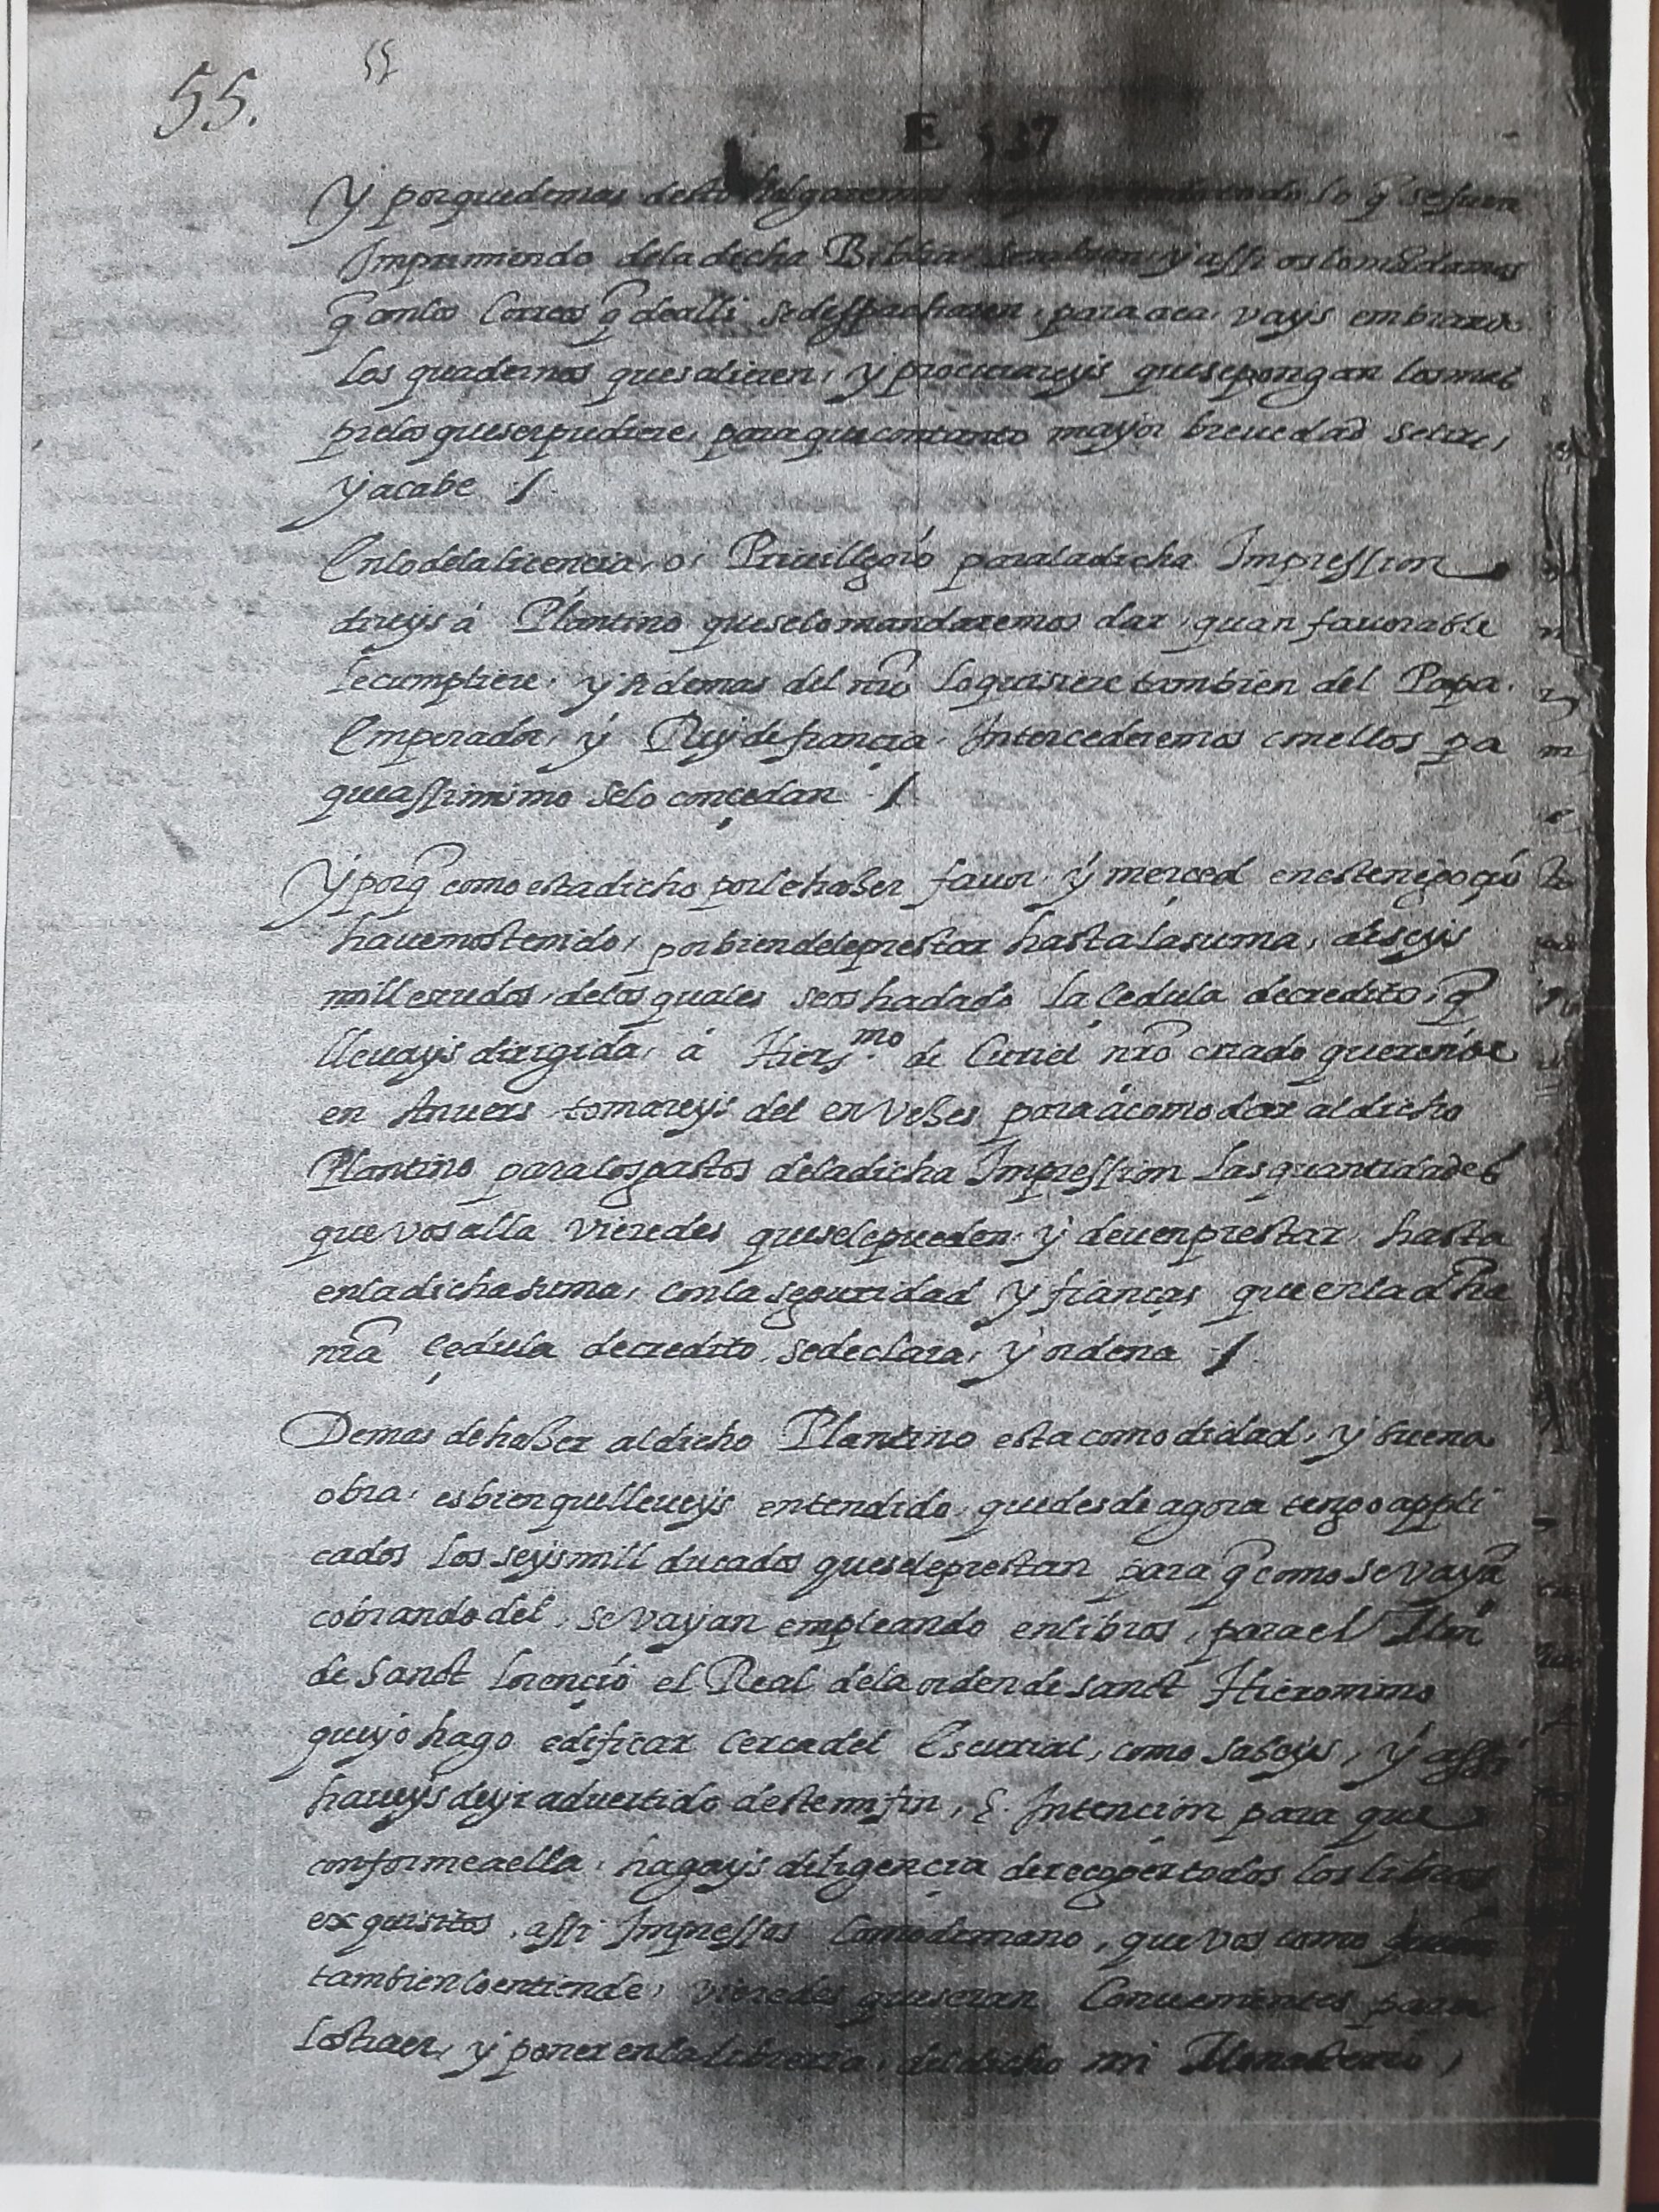 55.
55
E 537
Y porque demas desto holgaremos yr viendo lo q̃ se fuere
Imprimiendo de la dicha Biblia sera bien y assi os lo mãdamos
q̃ con los Correos q̃ de alli se desspacharen, para aca, vays embiando
los quadernos que salieren, y procurareys que se pongan los mas
prelos que ser pudiere, para que con tanto mayor breuedad se tire,
y acabe /.
En lo de la licencia, o, Preuillegio para la dicha Impression
direys á Plantino que se lo mandaremos dar, quan fauorable
le cumpliere, y si demas del nr̃o lo quisiere tambien del Papa.
Emperador, y Rey de francia, Intercederemos con ellos pa
que assimismo se lo conçedan /.
Y porq̃ como esta dicho por le hazer fauor, y merçed en este negoçio
hauemos tenido, por bien de le prestar hasta la suma, de seys
mill escudos, de los quales se os ha dado la çedula de credito, q̃
lleuays dirigida, á Hier.mo de Curiel nr̃o criado que reside
en Anuers tomareys del en vezes para ácomodar al dicho
Plantino para los gastos de la dicha Impression las quantidades
que vos alla vieredes que se le pueden, y deuen prestar, hasta
en la dicha suma, con la seguridad y fianças que en la dha
nr̃a çedula de credito, se declara, y ordena /.
Demas de hazer al dicho Plantino esta comodidad, y buena
obra, es bien que lleueys entendido, que desde agora tengo appli
cados los seys mill ducados que se le prestan para q̃ como se vayã
cobrando del, se vayan empleando en libros, para el Mon.o
de sanct lorençio el Real de la orden de sanct Hieronimo
que yo hago edificar cerca del Escurial, como sabeys, y assi
haueys de yr aduertido deste mi fin, é, Intencion para que
conforme a ella, hagays diligençia de recoger todos los libros
exquisitos, assi Impressos como de mano, que vos como quien
tambien lo entiende, vieredes que seran Conuenientes para
los traer, y poner en la libreria, del dicho mi Monasterio,